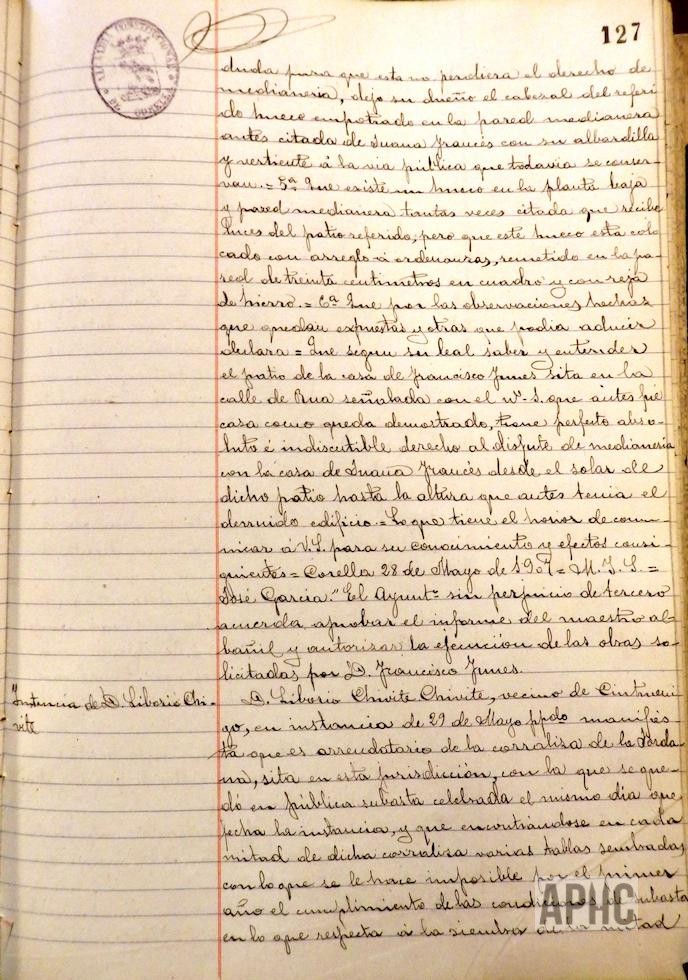 127
ALCALDIA CONSTITUCIONAL
DE CORELLA
duda para que esta no perdiera el derecho de
medianeria, dejo su dueño el cabezal del referi
do hueco empotrado en la pared medianera
antes citada de Juana Francés con su albardilla
y vertiente á la via pública que todavia se conser-
van. = 5ª Que existe un hueco en la planta baja
y pared medianera tantas veces citada que recibe
luces del patio referido, pero que este hueco está colo
cado con arreglo á ordenanzas, remetido en la pa-
red de treinta centimetros en cuadro y con reja
de hierro. = 6ª Que por las observaciones hechas
que quedan expuestas y otras que podia aducir
declara = Que segun su leal saber y entender
el patio de la casa de Francisco Junes sita en la
calle de Rua señalada con el nº 5. que antes fué
casa como queda demostrado, tiene perfecto abso-
luto é indiscutible derecho al disfrute de medianeria
con la casa de Juana Francés desde el solar de
dicho patio hasta la altura que antes tenia el
derruido edificio. = Lo que tiene el honor de comu-
nicar á V.S. para su conocimiento y efectos consi-
guientes = Corella 28 de Mayo de 1907 = M. I. S. =
José Garcia." El Ayuntº sin perjuicio de tercero
acuerda aprobar el informe del maestro al-
bañil y autorizar la ejecución de las obras so-
licitadas por D. Francisco Junes.
Instancia de D. Liborio Chi-
vite
D. Liborio Chivite Chivite, vecino de Cintrueni-
go, en instancia de 29 de Mayo ppdo manifies-
ta que es arrendatario de la corraliza de la Jorda
na, sita en esta jurisdicción, con la que se que-
dó en pública subasta celebrada el mismo dia que
fecha la instancia, y que encontrándose en cada
mitad de dicha corraliza varias tablas sembradas,
con lo que se le hace imposible por el primer
año el cumplimiento de las condiciones de subasta
en lo que respecta á la siembra de la mitad
APHC